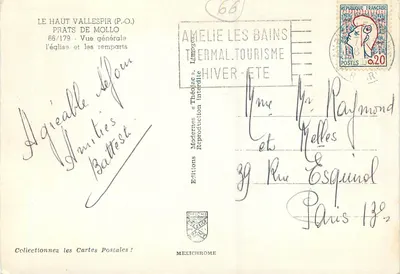 LE HAUT VALLESPIR (P.-O.)
PRATS DE MOLLO
66/179 - Vue générale
l'église et les remparts
66
AMELIE LES BAINS
THERMAL. TOURISME
HIVER - ETE
REPUBLIQUE FRANÇAISE
POSTES 0,20
Agréable séjour
Amitiés
Battest
Editions Modernes « Théojac » Limoges
Reproduction interdite
Mme Mr Raymond
et Melles
39 Rue Esquirol
Paris 13e
Collectionnez les Cartes Postales !
MEXICHROME